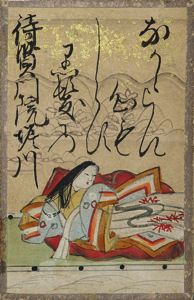 なかからん
心も
しらす
黒髪の
待賢門院堀川